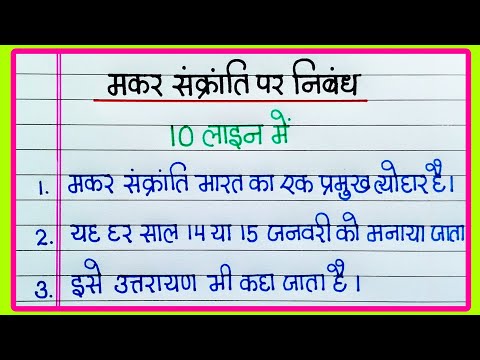 मकर संक्रांति पर निबंध
10 लाइन में
1. मकर संक्रांति भारत का एक प्रमुख त्योहार है।
2. यह हर साल 14 या 15 जनवरी को मनाया जाता
3. इसे उत्तरायण भी कहा जाता है।